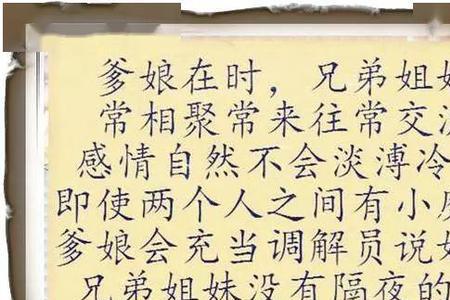 爹娘在时，兄弟姐
常相聚常来往常交
感情自然不会淡溥冷
即使两个人之间有小
爹娘会充当调解员说
兄弟姐妹没有隔夜的